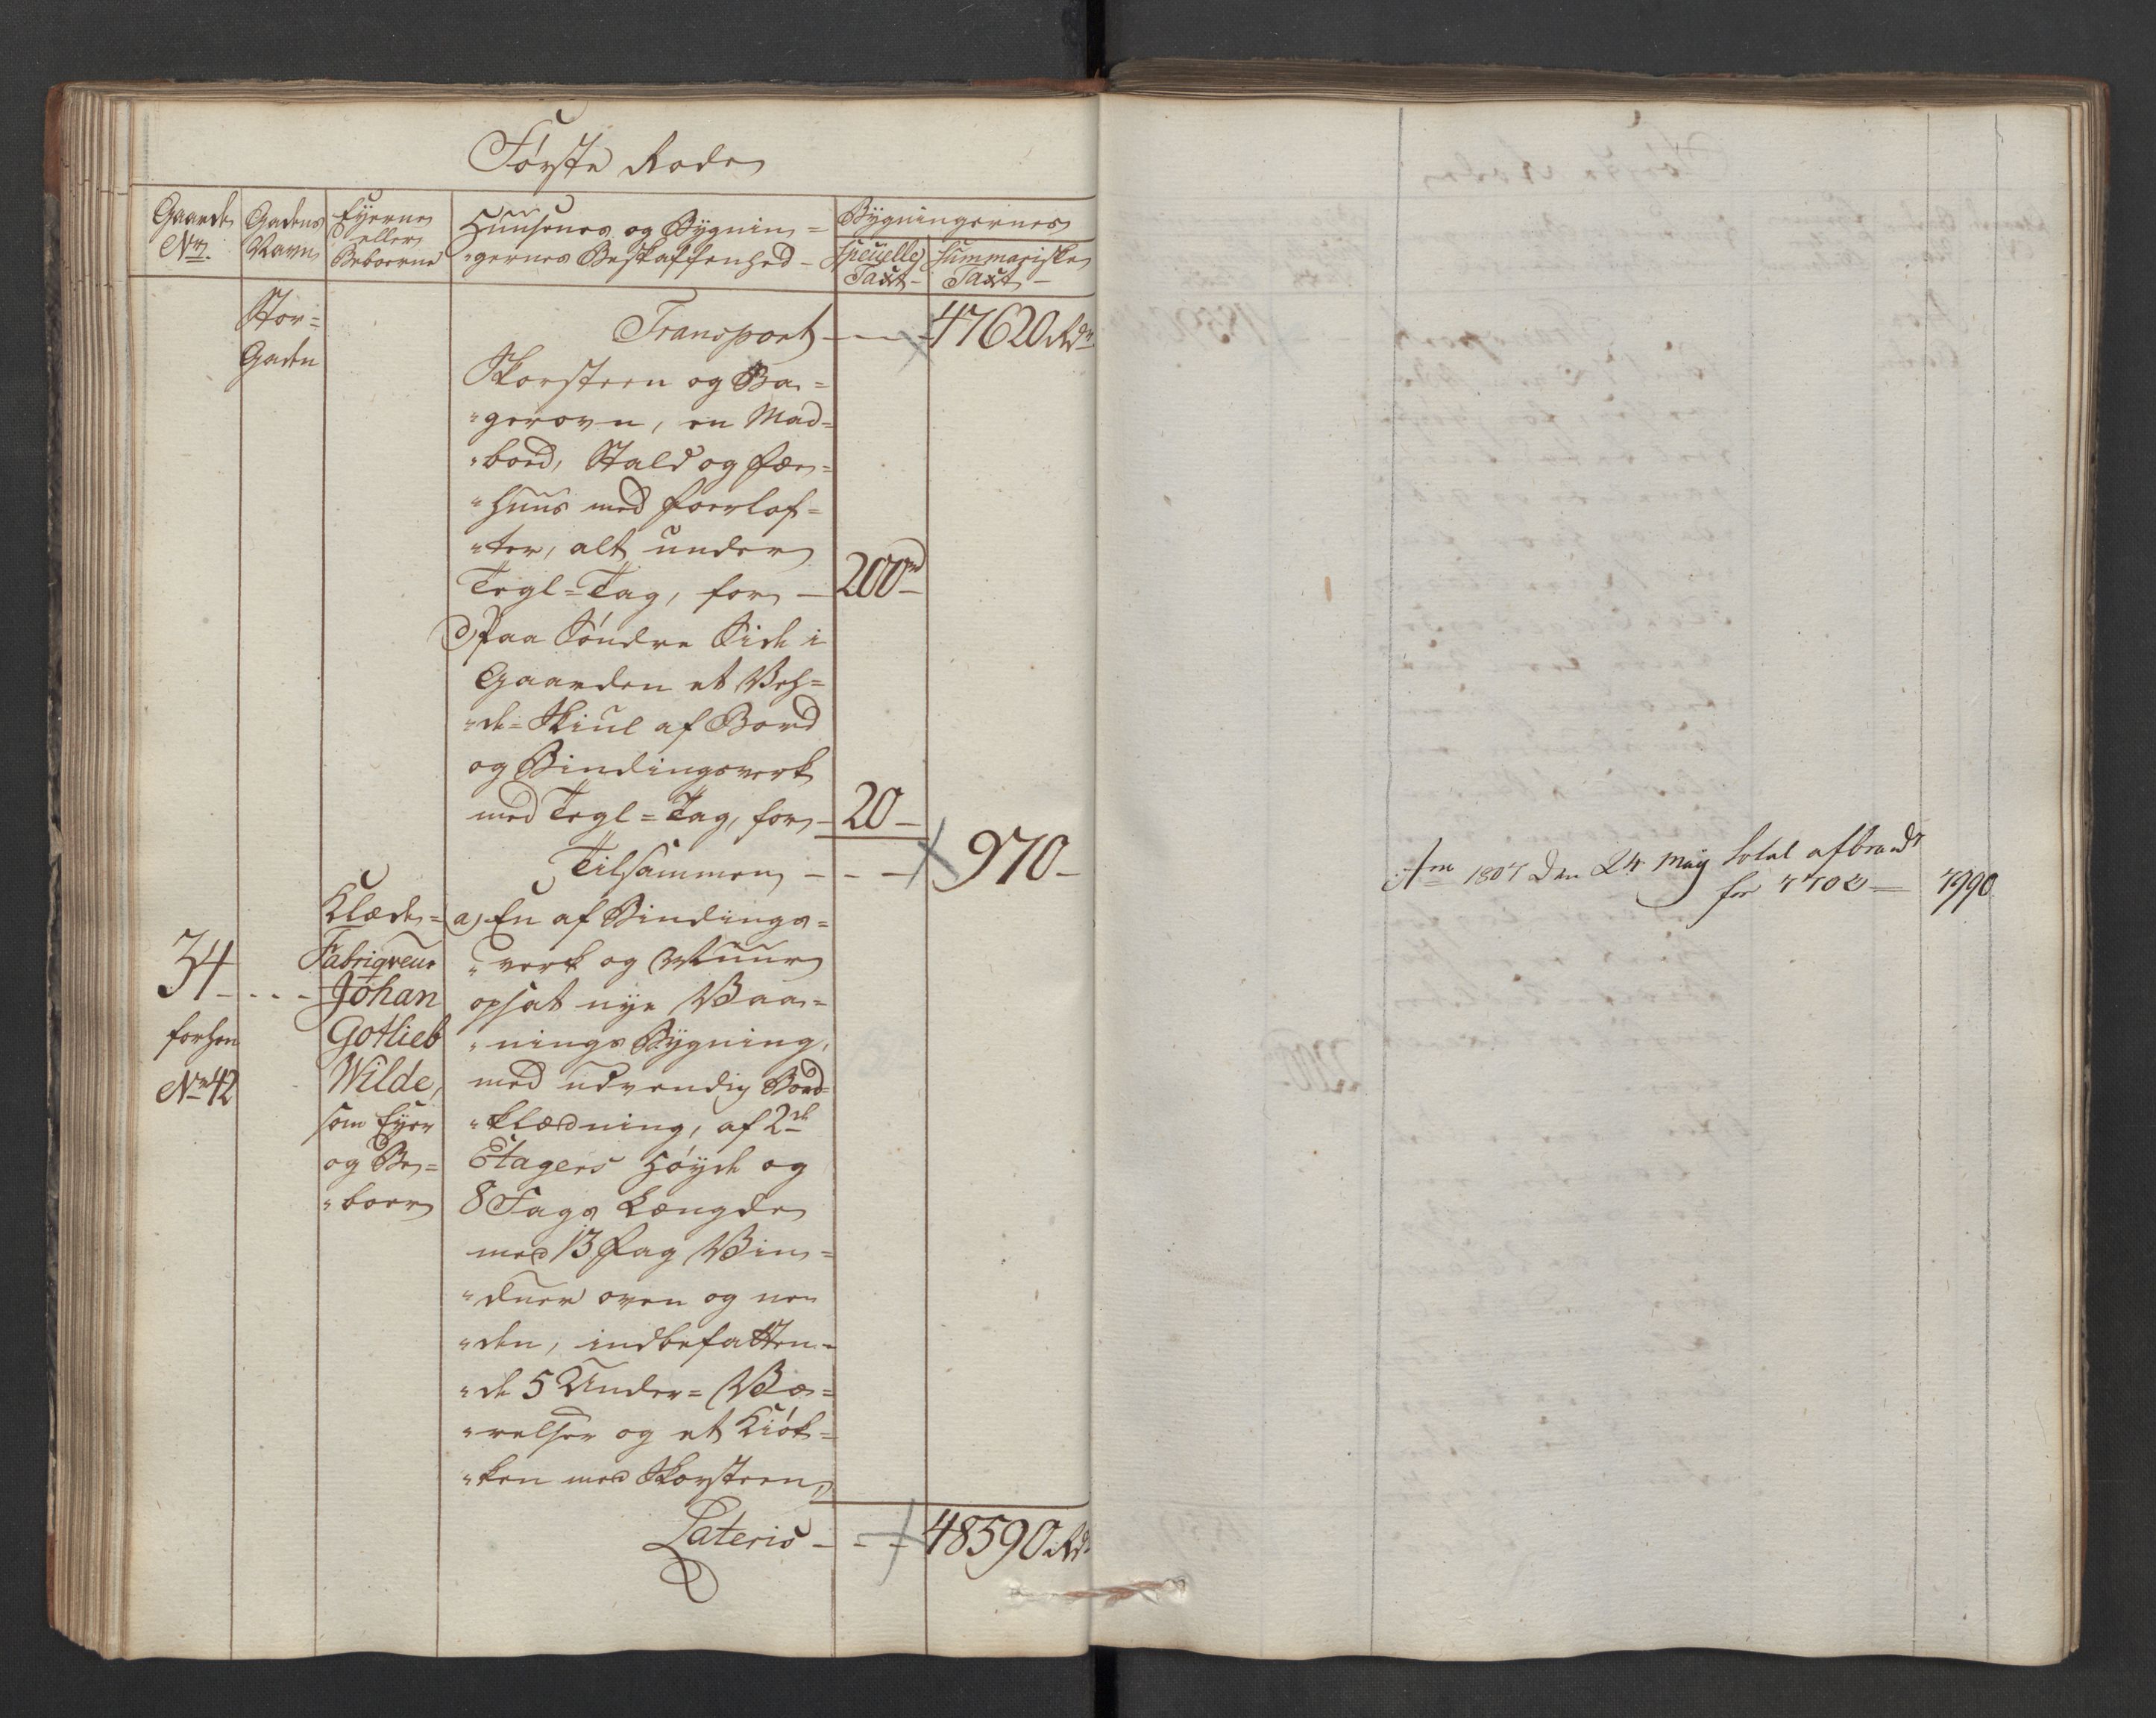 Første Rode
Gaarde Nr.
Gadens Navn
Eyerne eller Beboerne
Huusenes og Bygnin=
"gernes Beskaffenhed
Bygningernes
specielle Taxt
Summariske Taxt
Stor=
Gaden
Transport - - - 47620 Rdr
Skorsteen og Ba=
"gerovn, en Mad=
"bod, Stald og Fæe=
"huus med Foerlof=
"ter, alt under
Tegl=Tag, for - 200 rd
d) Paa Søndre Side i
Gaarden et Veh=
"de=Skiul af Bord
og Bindingsverk
med Tegl=Tag, for - 20 -
Tilsammen - - - 970 -
34 - - - -
forhen
No 42
Klæde=
Fabriqveur
Johan
Gotlieb
Wilde,
som Eyer
og Be=
"boer
a) En af Bindings=
"verk og Muur
opsat nye Vaa=
"nings Bygning,
med udvendig Bord=
"klædning, af 2de
Etagers Høyde og
8 Fags Længde
med 13 Fag Vin=
"duer oven og ne
"den, indbefatten=
"de 5 Under=Væ=
"relser og et Kiøk=
"ken med Skorsteen,
Lateris - - - 48590 Rd
1807 Den 24 May total afbrandt
for 7990